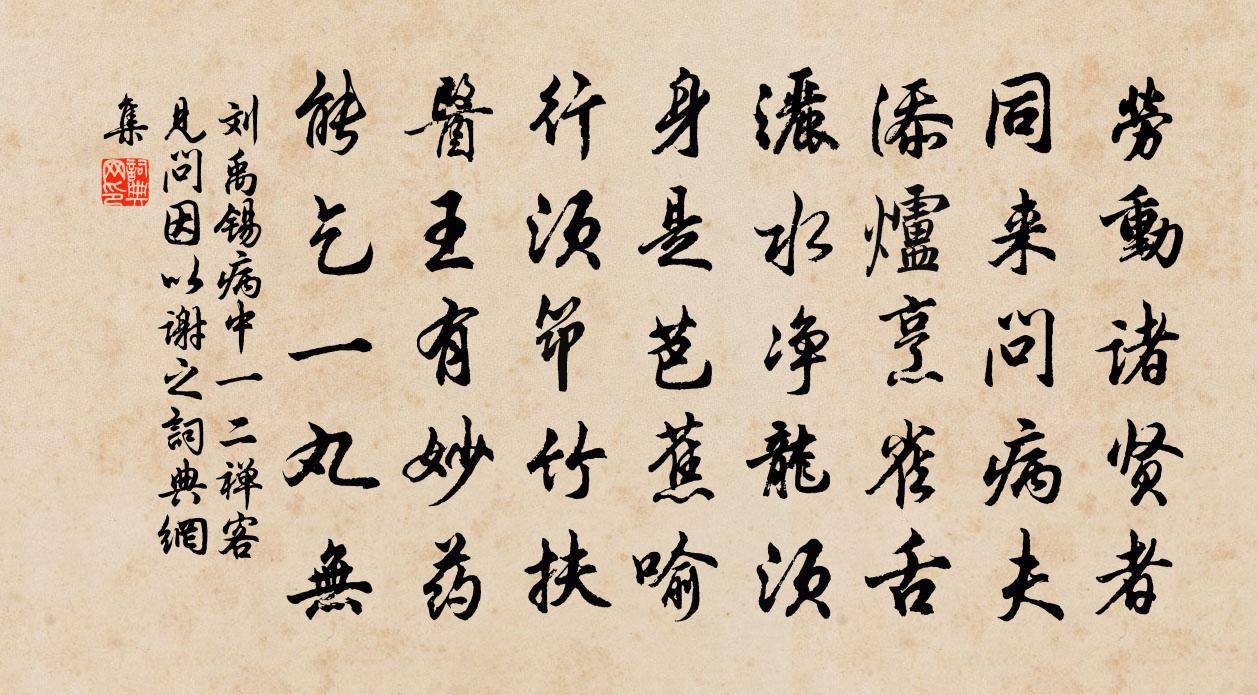 勞動諸贤者
同来问病夫
添爐烹雀舌
灑水净龍须
身是芭蕉喻
行须筇竹扶
醫王有妙药
能乞一丸無
刘禹锡病中一二禅客
见问因以谢之詞典網
集
詞典网印